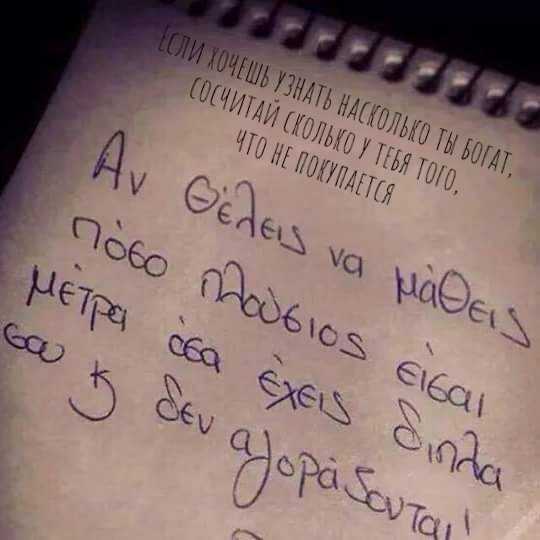 Если хочешь узнать насколько ты богат,
сосчитай сколько у тебя того,
что не покупается
Αν θέλεις να μάθεις
πόσο πλούσιος είσαι
μέτρα όσα έχεις δίπλα
σου κ δεν αγοράζονται!